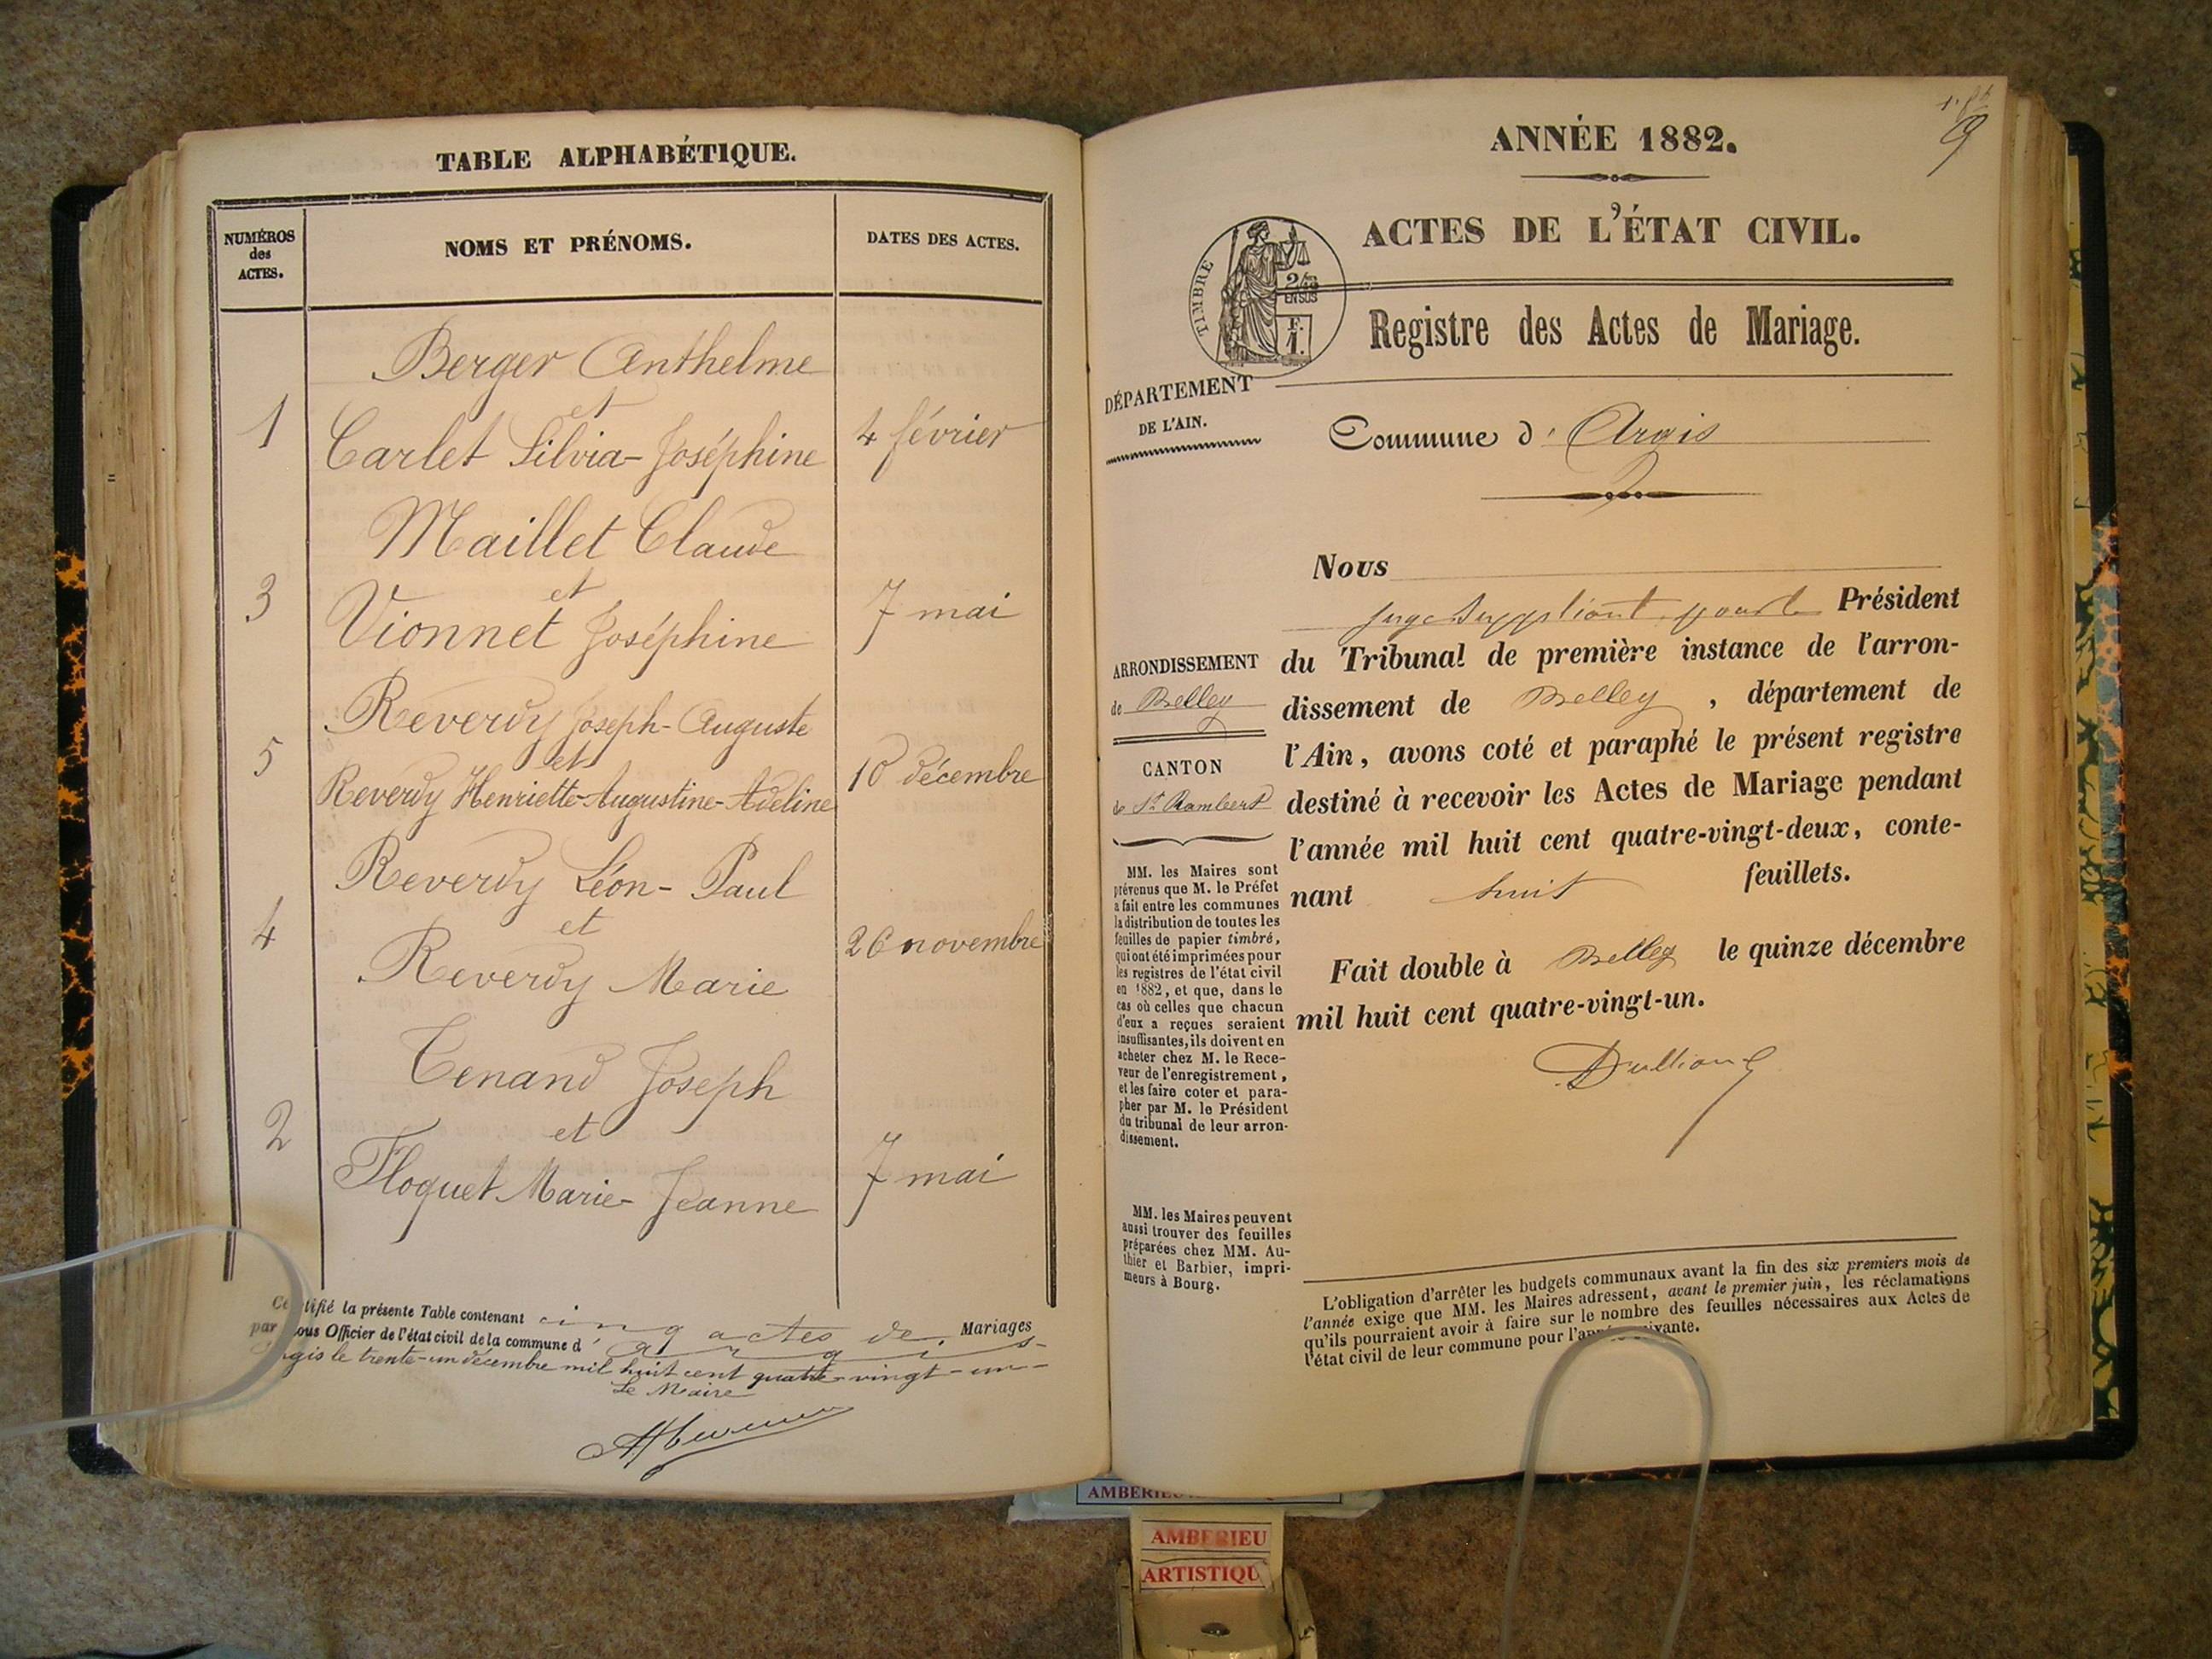 TABLE ALPHABÉTIQUE.
NUMÉROS
des
ACTES.
NOMS ET PRÉNOMS.
DATES DES ACTES.
Berger Anthelme
et
1 Carlet Silvia-Joséphine 4 février
Maillet Claude
et
3 Vionnet Joséphine 7 mai
Reverdy Joseph-Auguste
et
5 Reverdy Henriette-Augustine-Adeline 10 décembre
Reverdy Léon-Paul
et
4 Reverdy Marie 26 novembre
Tenand Joseph
et
2 Floquet Marie-Jeanne 7 mai
tifié la présente Table contenant cinq actes de Mariages
par ous Officier de l'état civil de la commune d' Argis
gis le trente-un décembre mil huit cent quatre-vingt-un-
Le Maire
ANNÉE 1882.
9
ACTES DE L'ÉTAT CIVIL.
TIMBRE
2/10
EN SUS
F.
1.
Registre des Actes de Mariage.
DÉPARTEMENT
DE L'AIN.
Commune d' Argis
Nous
Juge Suppléant, pour le Président
du Tribunal de première instance de l'arron-
dissement de Belley, département de
l'Ain, avons coté et paraphé le présent registre
destiné à recevoir les Actes de Mariage pendant
l'année mil huit cent quatre-vingt-deux, conte-
nant huit feuillets.
Fait double à Belley le quinze décembre
mil huit cent quatre-vingt-un.
ARRONDISSEMENT
de Belley
CANTON
de St Rambert
MM. les Maires sont
prévenus que M. le Préfet
a fait entre les communes
la distribution de toutes les
feuilles de papier timbré,
qui ont été imprimées pour
les registres de l'état civil
en 1882, et que, dans le
cas où celles que chacun
d'eux a reçues seraient
insuffisantes, ils doivent en
acheter chez M. le Rece-
veur de l'enregistrement,
et les faire coter et para-
pher par M. le Président
du tribunal de leur arron-
dissement.
MM. les Maires peuvent
aussi trouver des feuilles
préparées chez MM. Au-
thier et Barbier, impri-
meurs à Bourg.
L'obligation d'arrêter les budgets communaux avant la fin des six premiers mois de
l'année exige que MM. les Maires adressent, avant le premier juin, les réclamations
qu'ils pourraient avoir à faire sur le nombre des feuilles nécessaires aux Actes de
l'état civil de leur commune pour l'année suivante.
AMBERIEU
AMBERIEU
ARTISTIQU